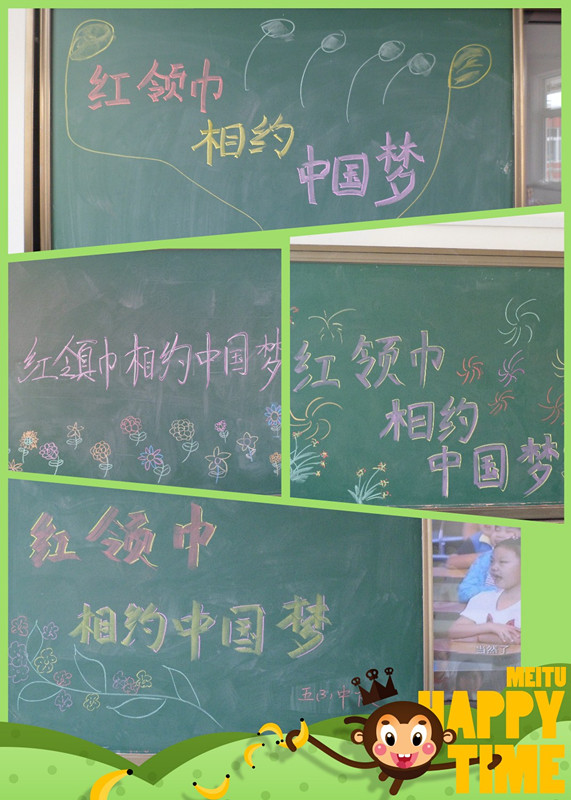 红领巾
相约
中国梦
红领巾相约中国梦
红领巾
相约
中国梦
红领巾
相约中国梦
当然了
MEITU
HAPPY
TIME